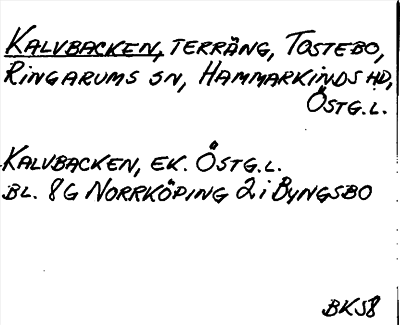 KALVBACKEN, TERRÄNG, TOSTEBO,
RINGARUMS SN, HAMMARKINDS HD,
ÖSTG.L.
KALVBACKEN, EK. ÖSTG.L.
BL. 8G NORRKÖPING 2i BYNGSBO
BKS8